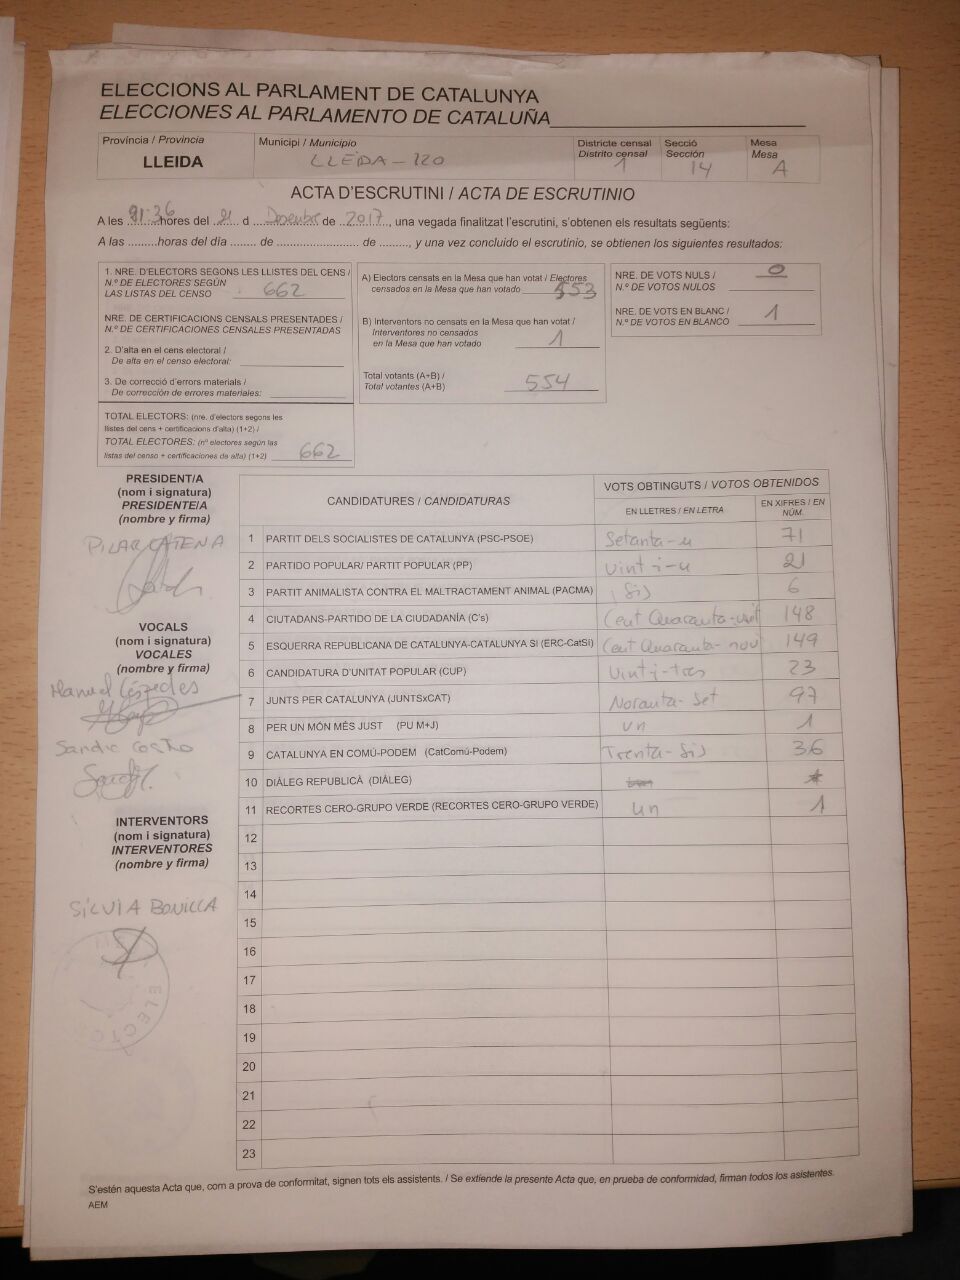 ELECCIONS AL PARLAMENT DE CATALUNYA
ELECCIONES AL PARLAMENTO DE CATALUÑA
Província / Provincia
LLEIDA
Municipi / Municipio
LLEIDA-120
Districte censal
Distrito censal
1
Secció
Sección
14
Mesa
Mesa
A
ACTA D'ESCRUTINI / ACTA DE ESCRUTINIO
A les 21:36 hores del 21 d Desembre de 2017, una vegada finalitzat l'escrutini, s'obtenen els resultats següents:
A las .........horas del día ........ de ......................... de ........., y una vez concluido el escrutinio, se obtienen los siguientes resultados:
1. NRE. D'ELECTORS SEGONS LES LLISTES DEL CENS /
N.º DE ELECTORES SEGÚN
LAS LISTAS DEL CENSO 662
NRE. DE CERTIFICACIONS CENSALS PRESENTADES /
N.º DE CERTIFICACIONES CENSALES PRESENTADAS
2. D'alta en el cens electoral /
De alta en el censo electoral:
3. De correcció d'errors materials /
De corrección de errores materiales:
TOTAL ELECTORS: (nre. d'electors segons les
llistes del cens + certificacions d'alta) (1+2) /
TOTAL ELECTORES: (nº electores según las
listas del censo + certificaciones de alta) (1+2) 662
A) Electors censats en la Mesa que han votat / Electores
censados en la Mesa que han votado 553
B) Interventors no censats en la Mesa que han votat /
Interventores no censados
en la Mesa que han votado 1
Total votants (A+B) /
Total votantes (A+B) 554
NRE. DE VOTS NULS /
N.º DE VOTOS NULOS 0
NRE. DE VOTS EN BLANC /
N.º DE VOTOS EN BLANCO 1
PRESIDENT/A
(nom i signatura)
PRESIDENTE/A
(nombre y firma)
PILAR CATENA
VOCALS
(nom i signatura)
VOCALES
(nombre y firma)
Manuel Céspedes
Sandra Castro
INTERVENTORS
(nom i signatura)
INTERVENTORES
(nombre y firma)
SILVIA BONILLA
ELECTO
CANDIDATURES / CANDIDATURAS
VOTS OBTINGUTS / VOTOS OBTENIDOS
EN LLETRES / EN LETRA
EN XIFRES / EN NÚM.
1 PARTIT DELS SOCIALISTES DE CATALUNYA (PSC-PSOE) Setanta-u 71
2 PARTIDO POPULAR/ PARTIT POPULAR (PP) vint-i-u 21
3 PARTIT ANIMALISTA CONTRA EL MALTRACTAMENT ANIMAL (PACMA) Sis 6
4 CIUTADANS-PARTIDO DE LA CIUDADANÍA (C's) Cent Quaranta-vuit 148
5 ESQUERRA REPUBLICANA DE CATALUNYA-CATALUNYA SÍ (ERC-CatSí) Cent Quaranta-nou 149
6 CANDIDATURA D'UNITAT POPULAR (CUP) Vint-i-tres 23
7 JUNTS PER CATALUNYA (JUNTSxCAT) Noranta-Set 97
8 PER UN MÓN MÉS JUST (PU M+J) un 1
9 CATALUNYA EN COMÚ-PODEM (CatComú-Podem) Trenta-Sis 36
10 DIÀLEG REPUBLICÀ (DIÀLEG)
11 RECORTES CERO-GRUPO VERDE (RECORTES CERO-GRUPO VERDE) un 1
12
13
14
15
16
17
18
19
20
21
22
23
S'estén aquesta Acta que, com a prova de conformitat, signen tots els assistents. / Se extiende la presente Acta que, en prueba de conformidad, firman todos los asistentes.
AEM